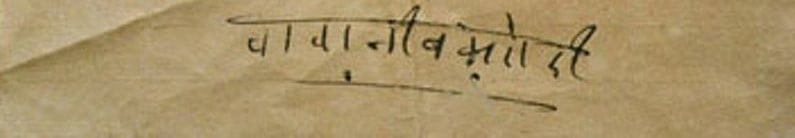 वावा नीव करोरी